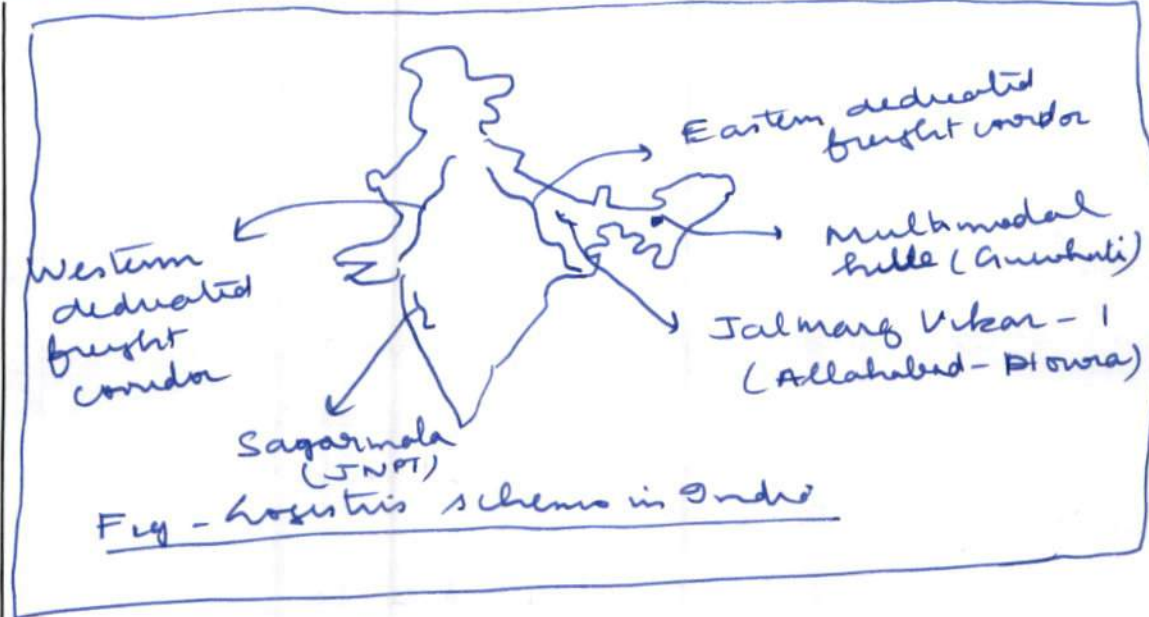 Eastern dedicated
freight corridor
Western
dedicated
freight
corridor
Multimodal
(Guwahati)
Jalmarg Vikas - 1
(Allahabad - Howra)
Sagarmala
(JNPT)
Fig - Logistics schemes in India